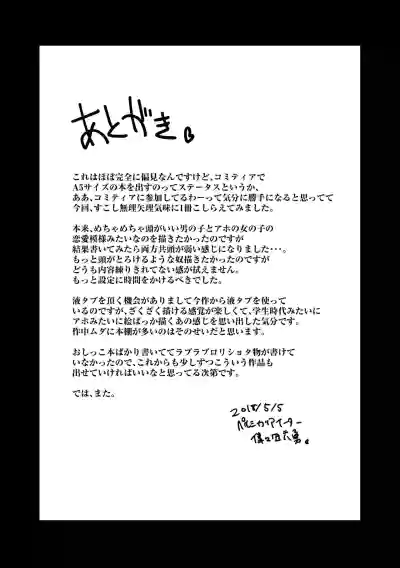 あとがき。
これはほぼ完全に偏見なんですけど、コミティアで
A5サイズの本を出すのってステータスというか、
ああ、コミティアに参加してるわーって気分に勝手になると思ってて
今回、すこし無理矢理気味に1冊こしらえてみました。
本来、めちゃめちゃ頭がいい男の子とアホの女の子の
恋愛模様みたいなのを描きたかったのですが
結果書いてみたら両方共頭が弱い感じになりました・・・。
もっと頭がとろけるような奴描きたかったのですが
どうも内容練りきれてない感が拭えません。
もっと設定に時間をかけるべきでした。
液タブを頂く機会がありまして今作から液タブを使って
いるのですが、ざくざく描ける感覚が楽しくて、学生時代みたいに
アホみたいに絵ばっか描くあの感じを思い出した気分です。
作中ムダに本棚が多いのはそのせいです。
おしっこ本ばかり書いててラブラブロリショタ物が書けて
いなかったので、これからも少しずつこういう作品も
出せていければいいなと思ってる次第です。
では、また。
2018/5/5